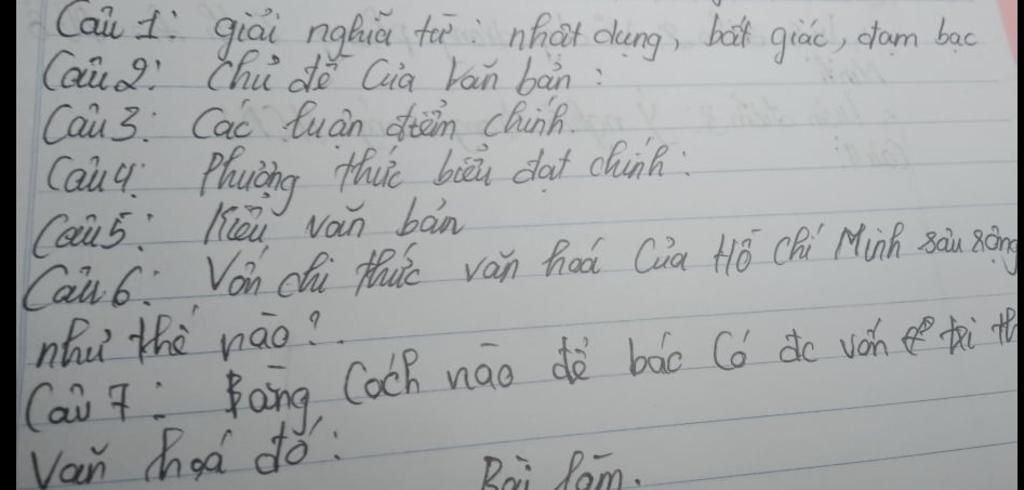 Câu 1: giải nghĩa từ: nhật dụng, bất giác, đạm bạc
Câu 2: Chủ đề của văn bản:
Câu 3: Các luận điểm chính.
Câu 4: Phương thức biểu đạt chính:
Câu 5: Kiểu văn bản
Câu 6: Vốn chi thức văn hoá Của Hồ Chí Minh sâu sộng
như thế nào?
Câu 7: Bằng Cách nào để bác Có đc vốn tri
Văn hoá đó:
Bài làm.